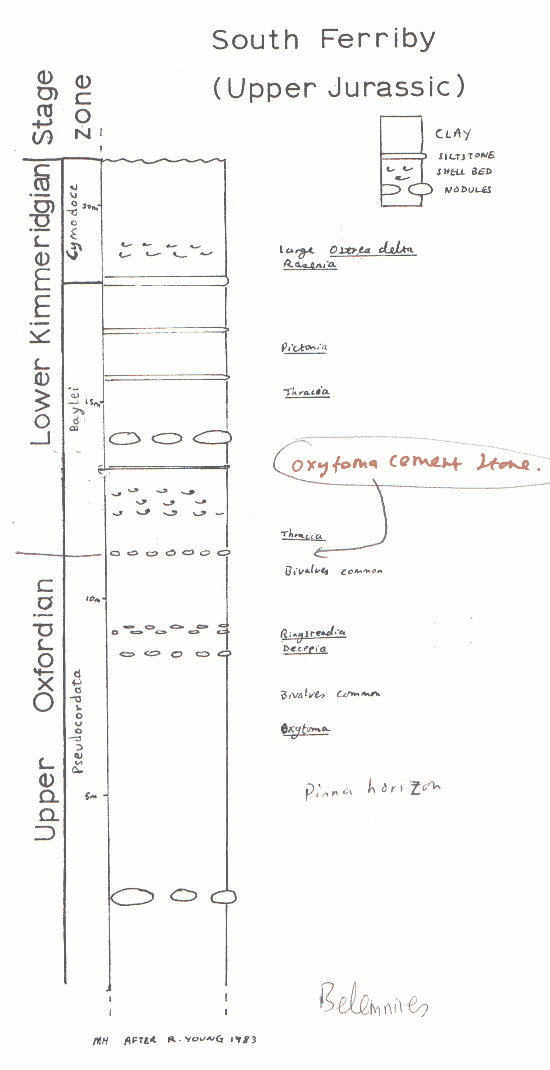 South Ferriby
(Upper Jurassic)
Stage
zone
CLAY
SILTSTONE
SHELL BED
NODULES
Lower Kimmeridgian
Cymodoce
30m
large Ostrea delta
Rasenia
Pictonia
Baylei
15m
Thracia
Oxytoma cement stone.
Thracia
Bivalves common
10m
Upper Oxfordian
Pseudocordata
Ringsteadia
Decipia
Bivalves common
Oxytoma
Pinna horizon
5m
Belemnites
MH AFTER R. YOUNG 1983